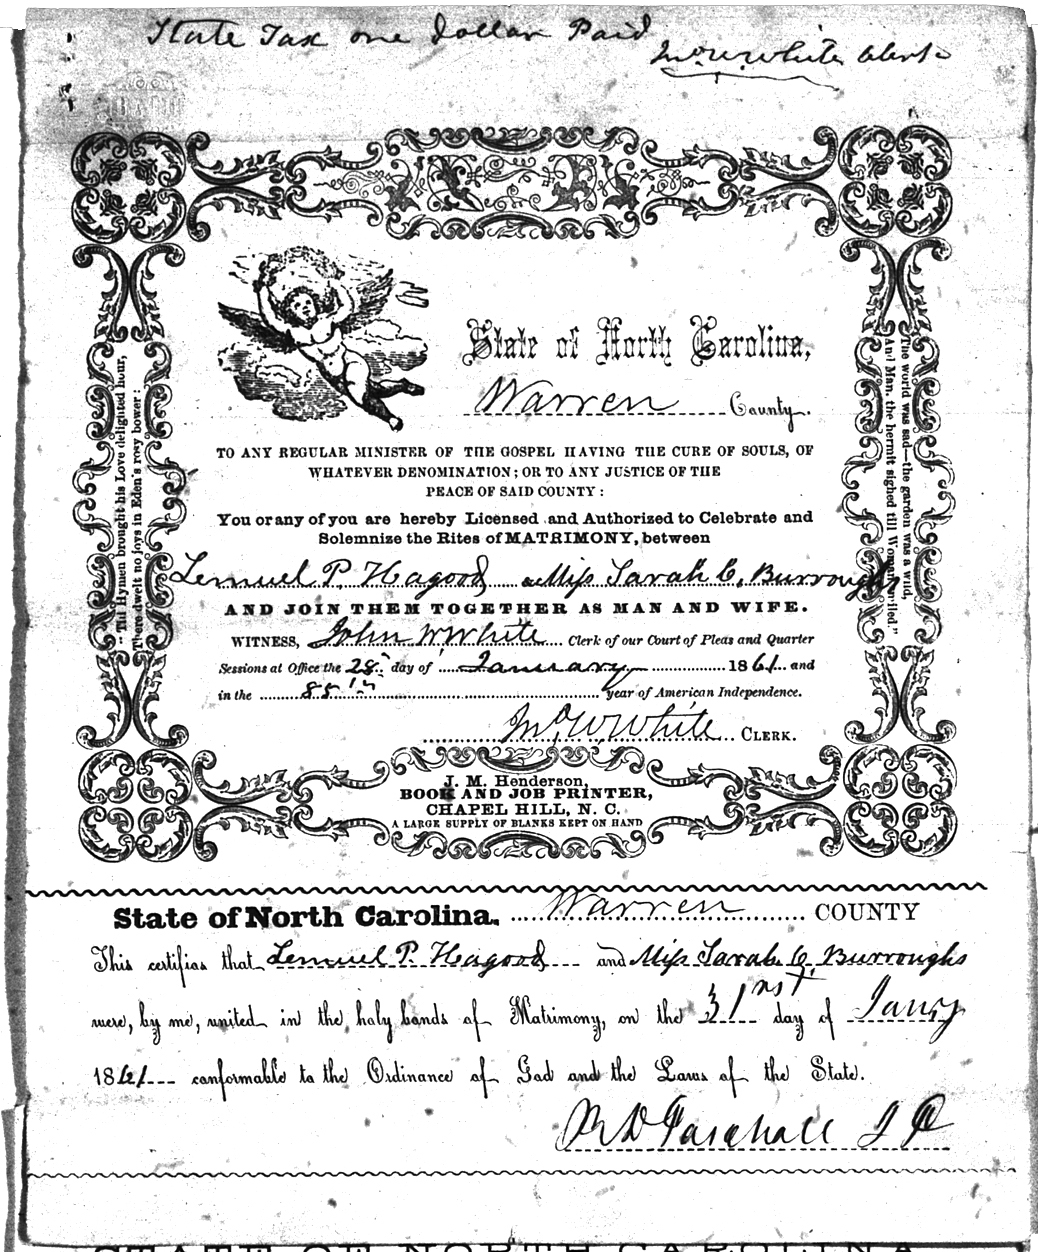 State Tax one dollar Paid
Jno W White Clerk
State of North Carolina,
Warren County.
"Till Hymen brought his Love delighted hour,
There dwelt no joys in Eden's rosy bower:
The world was sad—the garden was a wild,
And Man, the hermit sighed till Woman smiled."
TO ANY REGULAR MINISTER OF THE GOSPEL HAVING THE CURE OF SOULS, OF
WHATEVER DENOMINATION; OR TO ANY JUSTICE OF THE
PEACE OF SAID COUNTY:
You or any of you are hereby Licensed and Authorized to Celebrate and
Solemnize the Rites of MATRIMONY, between
Lemuel P. Hagood & Miss Sarah C. Burroughs
AND JOIN THEM TOGETHER AS MAN AND WIFE.
WITNESS, John W White Clerk of our Court of Pleas and Quarter
Sessions at Office the 28th day of January 1861 and
in the 85th year of American Independence.
Jno W White CLERK.
J. M. Henderson,
BOOK AND JOB PRINTER,
CHAPEL HILL, N. C.
A LARGE SUPPLY OF BLANKS KEPT ON HAND
State of North Carolina. Warren COUNTY
This certifies that Lemuel P. Hagood and Miss Sarah C. Burroughs
were, by me, united in the holy bonds of Matrimony, on the 31nst day of Jany
1861 conformable to the Ordinance of God and the Laws of the State.
R D Paschall J P
STATE OF NORTH CAROLINA